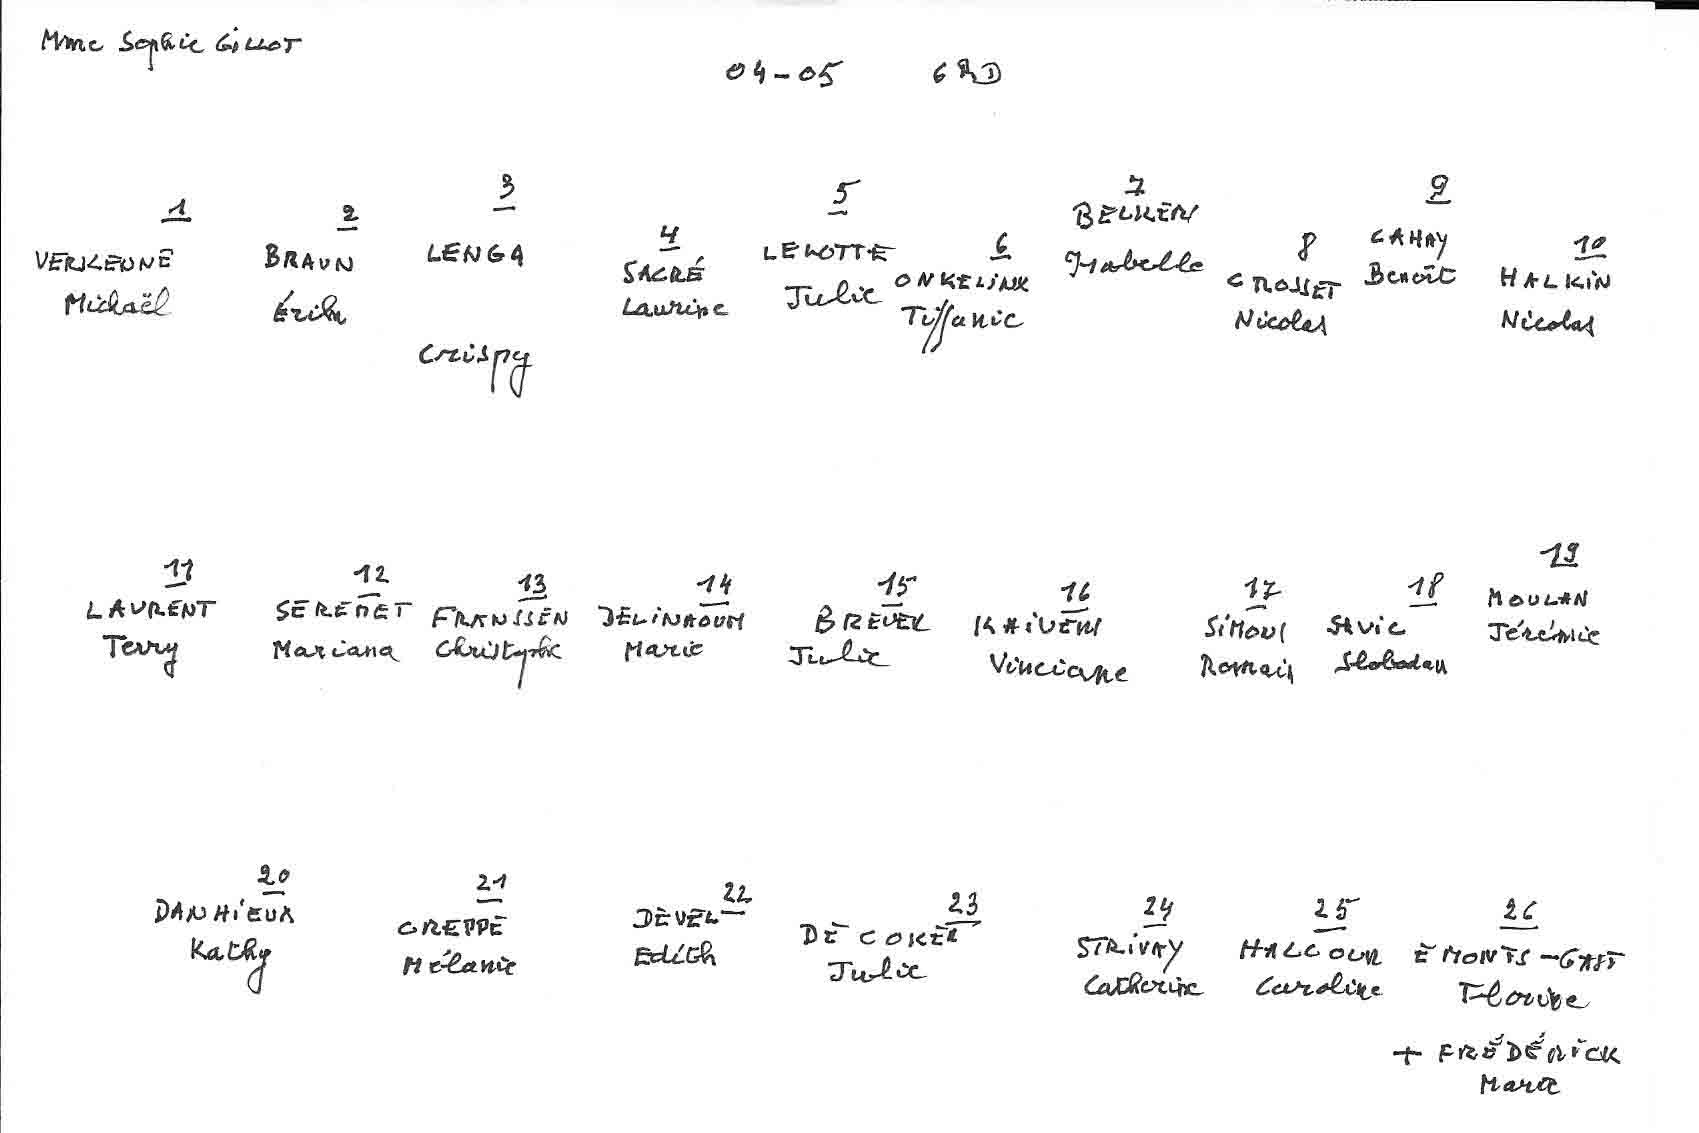 Mme Sophie GILLOT
04-05 6RD
1 2 3 4 5 6 7 8 9 10
VERJEUNE BRAUN LENGA SACRÉ LELOTTE ONKELINX BELKEN GROSSET CAHAY HALKIN
Michaël Érika Crispy Laurine Julie Tiffanie Isabelle Nicolas Benoît Nicolas
11 12 13 14 15 16 17 18 19
LAURENT SEREMET FRANSSEN BREUER SIMONI SAVIC MOULAN
Terry Mariana Christophe Marie Julie Vinciane Romain Slobodan Jérémie
20 21 22 23 24 25 26
DANHIEUX GREPPE DEVEL DE COKER STRIVAY HALCOUR EMONTS-GAST
Kathy Mélanie Edith Julie Catherine Caroline
+ FRÉDÉRICK
Marc